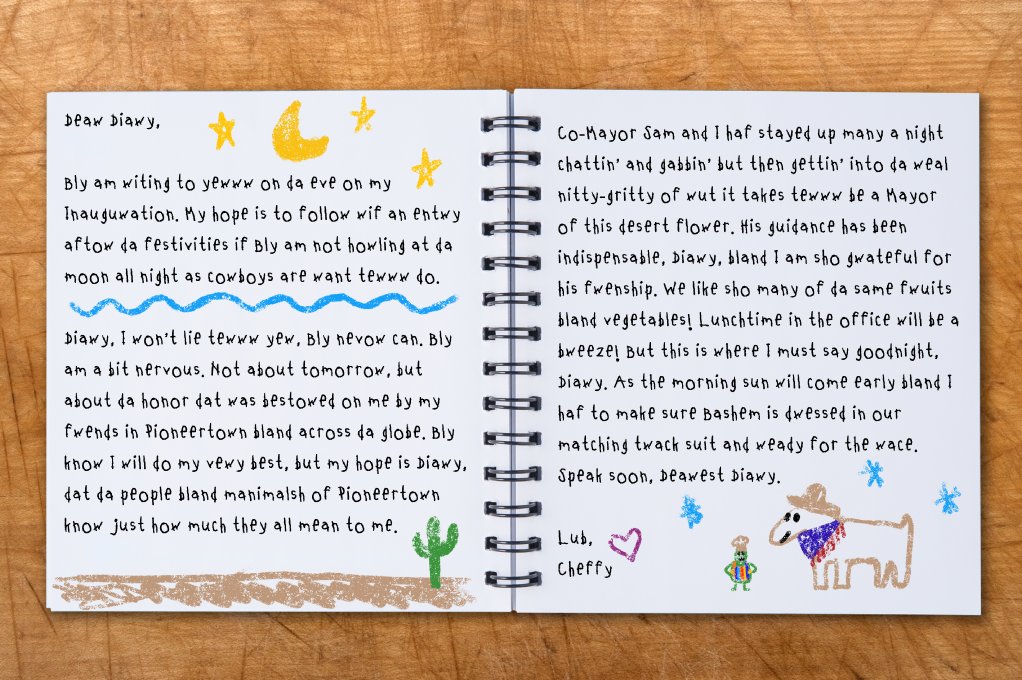 Deaw Diawy,
Bly am witing to yewww on da eve on my
Inauguwation. My hope is to follow wif an entwy
aftow da festivities if Bly am not howling at da
moon all night as cowboys are want tewww do.
Diawy, I won't lie tewww yew, Bly nevow can. Bly
am a bit nervous. Not about tomorrow, but
about da honor dat was bestowed on me by my
fwends in Pioneertown bland across da globe. Bly
know I will do my vewy best, but my hope is Diawy,
dat da people bland manimalsh of Pioneertown
know just how much they all mean to me.
Co-Mayor Sam and I haf stayed up many a night
chattin' and gabbin' but then gettin' into da weal
nitty-gritty of wut it takes tewww be a Mayor
of this desert flower. His guidance has been
indispensable, Diawy, bland I am sho gwateful for
his fwenship. We like sho many of da same fwuits
bland vegetables! Lunchtime in the office will be a
bweeze! But this is where I must say goodnight,
Diawy. As the morning sun will come early bland I
haf to make sure Bashem is dwessed in our
matching twack suit and weady for the wace.
Speak soon, Deawest Diawy.
Lub,
Cheffy